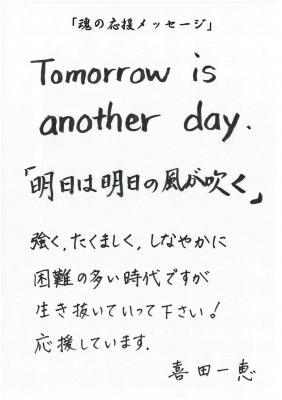 「魂の応援メッセージ」
Tomorrow is
another day.
「明日は明日の風が吹く」
強く,たくましく,しなやかに
困難の多い時代ですが
生き抜いていって下さい!
応援しています.
喜田一恵